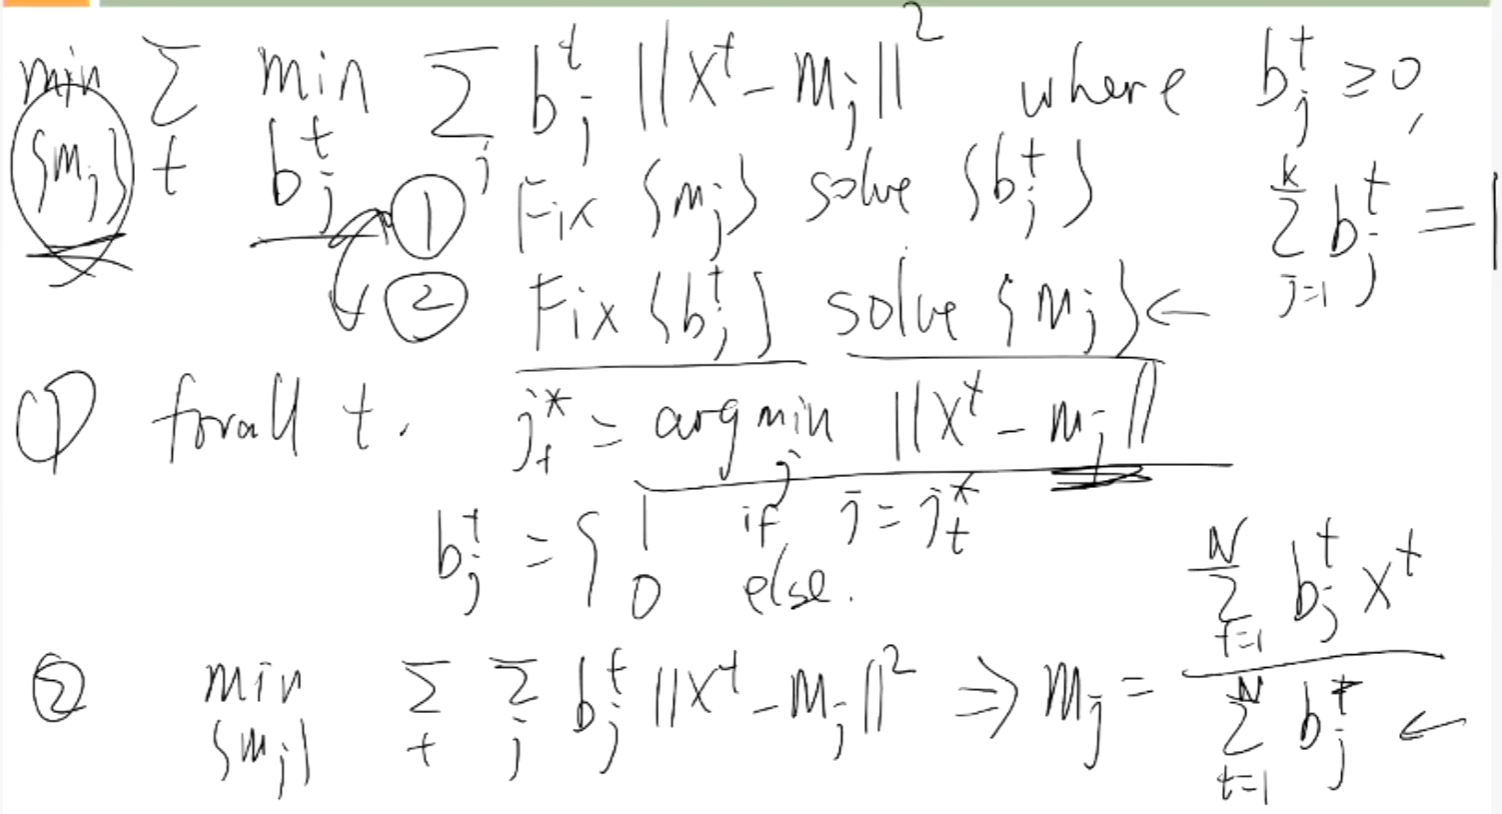 min_{m_j} Σ_t min_{b_j^t} Σ_j b_j^t ||x^t - m_j||^2 where b_j^t ≥ 0,
① Fix {m_j} solve {b_j^t} Σ_{j=1}^k b_j^t = 1
② Fix {b_j^t} solve {m_j} ←
① forall t. j_t^* = argmin_j ||x^t - m_j||
b_j^t = { 1 if j = j_t^*
0 else.
② min_{m_j} Σ_t Σ_j b_j^t ||x^t - m_j||^2 ⇒ m_j = Σ_{t=1}^N b_j^t x^t / Σ_{t=1}^N b_j^t ←